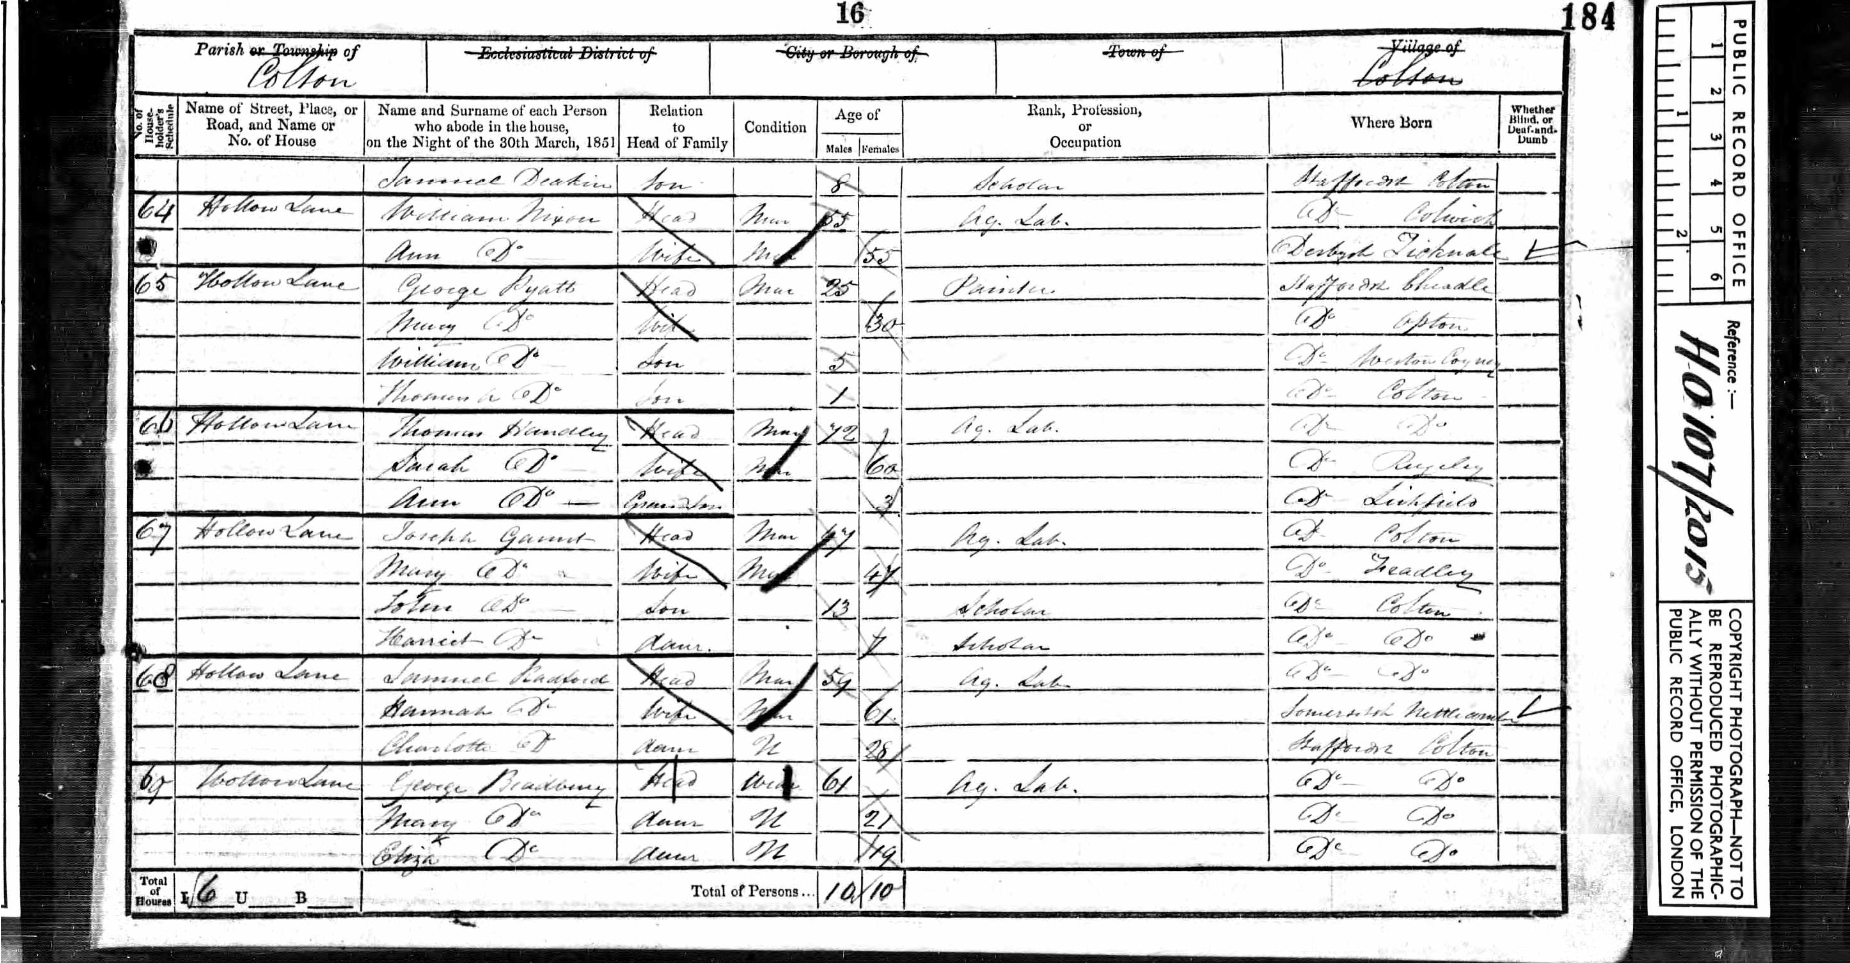 16
184
Parish or Township of
Colton
Ecclesiastical District of
City or Borough of
Town of
Village of
Colton
No. of House-holder's Schedule
Name of Street, Place, or Road, and Name or No. of House
Name and Surname of each Person who abode in the house, on the Night of the 30th March, 1851
Relation to Head of Family
Condition
Age of
Males Females
Rank, Profession, or Occupation
Where Born
Whether Blind, or Deaf-and-Dumb
Samuel Deakin Son 8 Scholar Staffordsh Colton
64 Hollow Lane William Nixon Head Mar 55 Ag. Lab. Do Colwich
Ann Do Wife Mar 55 Derbysh Ticknale
65 Hollow Lane George Pyatt Head Mar 25 Painter Staffordsh Cheadle
Mary Do Wife 30 Do
William Do Son 5 Do Weston Coyney
Thomas Do Son 1 Do Colton
66 Hollow Lane Thomas Handley Head Mar 72 Ag. Lab. Do Do
Sarah Do Wife Mar 60 Do Rugeley
Ann Do 3 Do Lichfield
67 Hollow Lane Joseph Head Mar 47 Ag. Lab. Do Colton
Mary Do Wife Mar 47 Do
John Do Son 13 Scholar Do Colton
Harriet Do daur. 7 Scholar Do Do
68 Hollow Lane Samuel Radford Head Mar 59 Ag. Lab. Do Do
Hannah Do Wife Mar 61 Somersetsh
Charlotte Do daur U 28 Staffordsh Colton
69 Hollow Lane George Bradbury Head Widr 61 Ag. Lab. Do Do
Mary Do daur U 21 Do Do
Eliza Do daur U 19 Do Do
Total of Houses I 6 U B Total of Persons... 10 10
PUBLIC RECORD OFFICE
1 2 3 4 5 6
1 2
Reference :—
HO 107/2015
COPYRIGHT PHOTOGRAPH—NOT TO BE REPRODUCED PHOTOGRAPHIC-ALLY WITHOUT PERMISSION OF THE PUBLIC RECORD OFFICE, LONDON